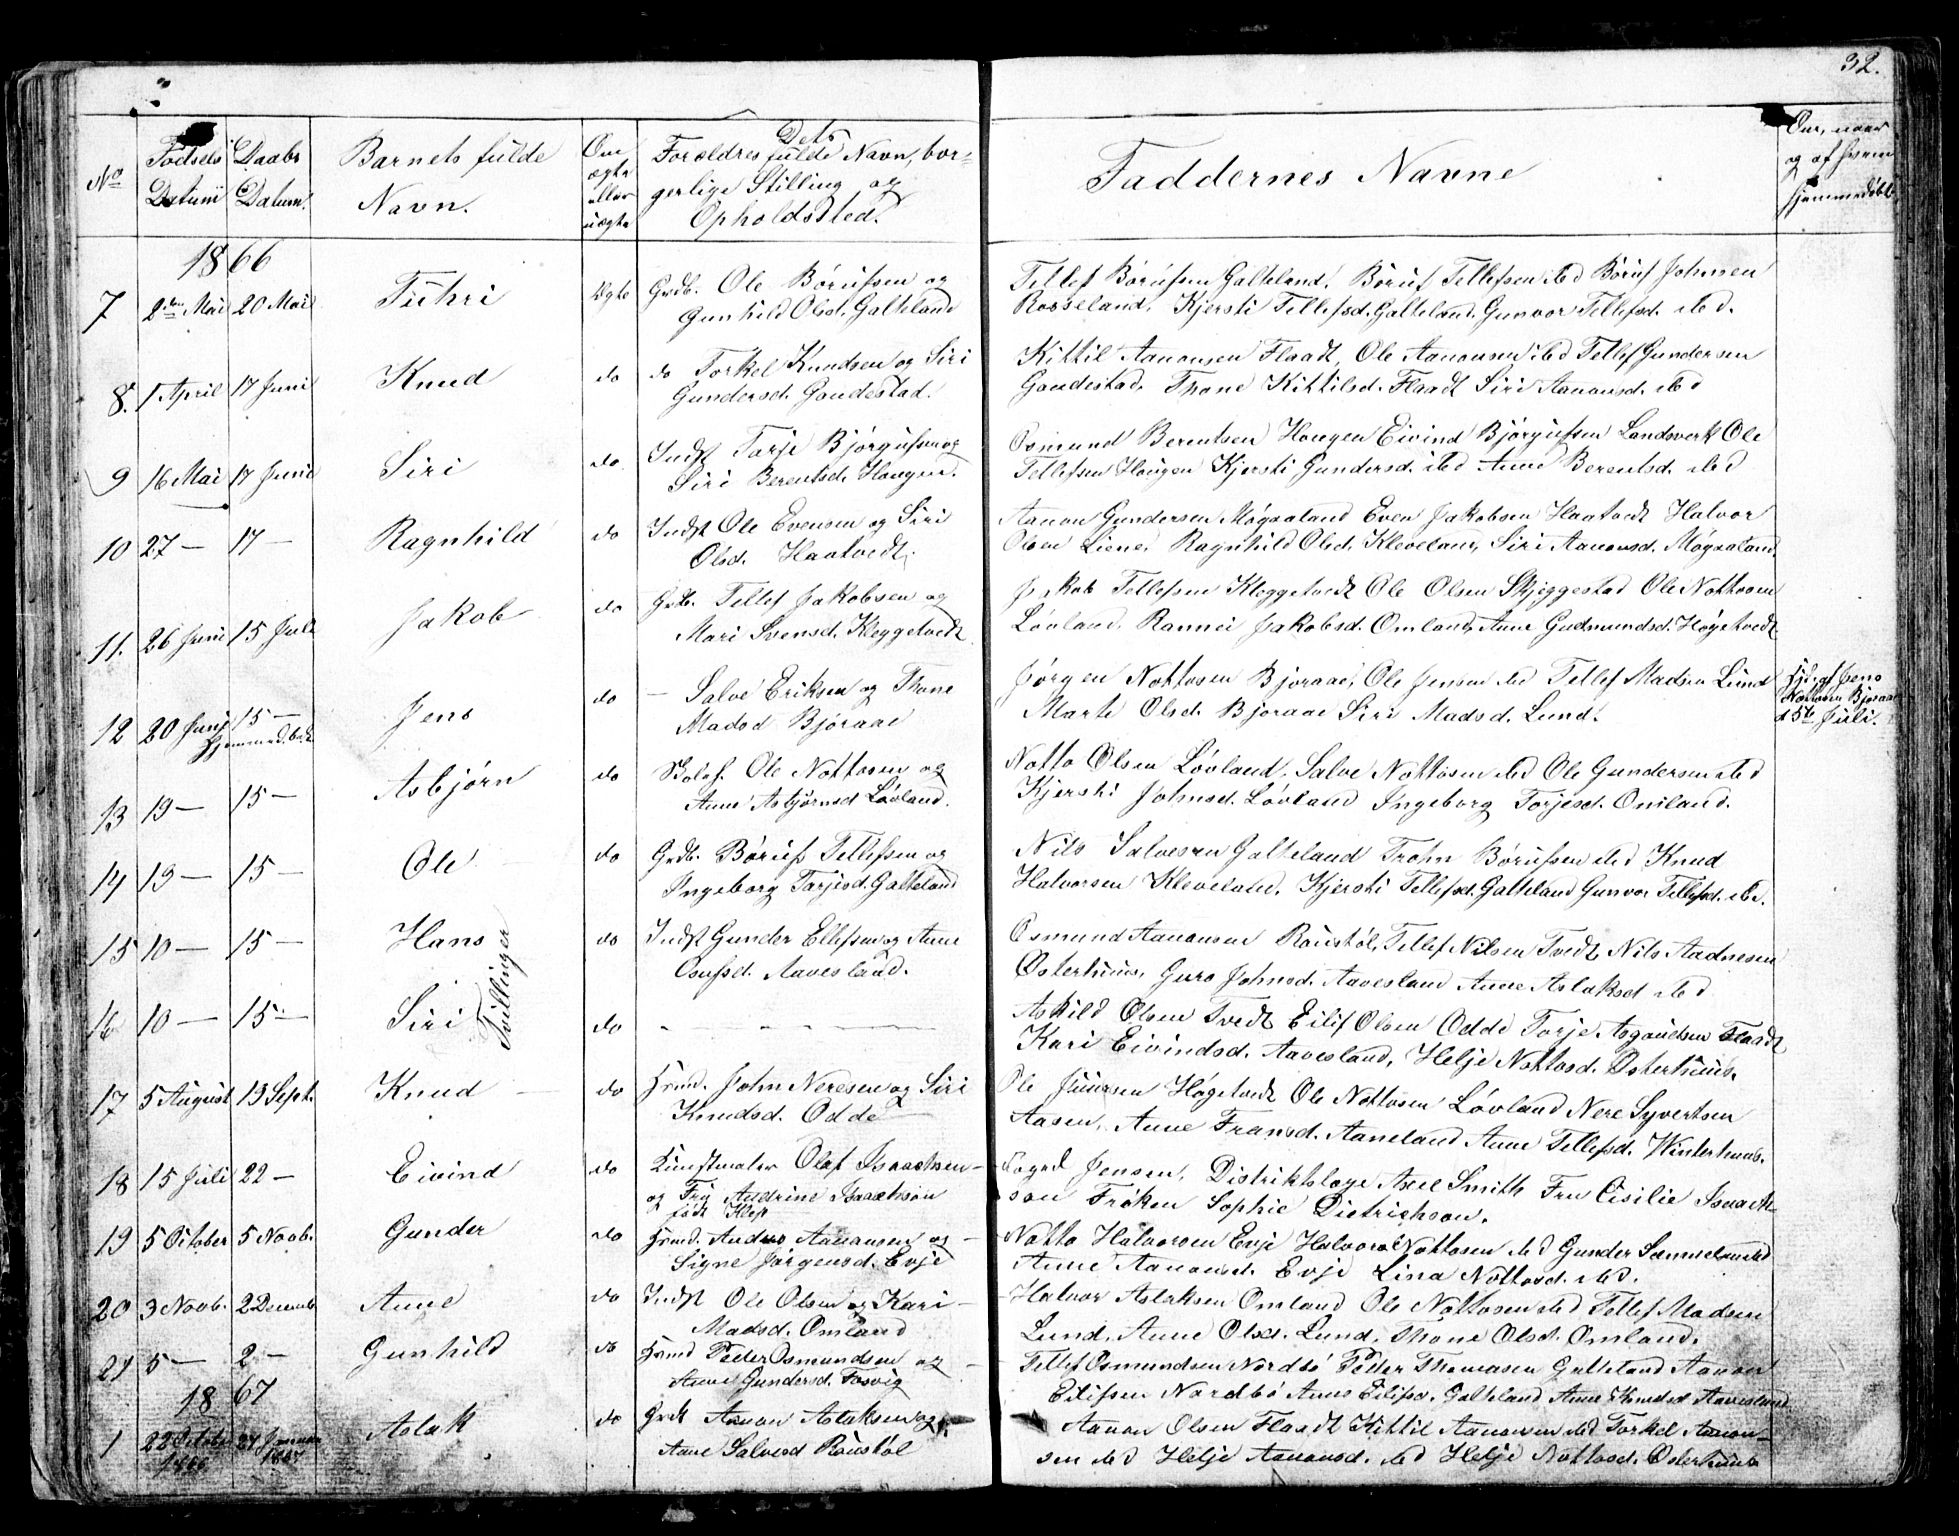 32.
No Födsels Datum Daabs Datum. Barnets fulde Navn. Om ægte eller uægte Forældres fulde Navn, bor=
gerlige Stilling og Opholdssted. Faddernes Navne Om, naar og af hvem hjemmedöbt
1866
7 2den Mai 20 Mai Tuhri Ægte Grdb. Ole Börufsen og
Gunhild Olsd. Galteland
Tellef Börufsen Galteland, Böruf Tellefsen ibd Böruf Johnsen
Rosseland, Kjersti Tellefsd. Galteland Gunvor Tellefsd. ibd.
8. 1 April 17 Juni Knud do do Torkel Knudsen og Siri
Gundersd. Gaudestad.
Kittil Aanonsen Flaadt, Ole Aanonsen ibd Tellef Gundersen
Gaudestad, Thone Kittilsd. Flaadt Siri Aanonsd. ibd
9 16 Mai 17 Juni Siri do Indst Torje Björgufsen og
Siri Berentsd. Hougen.
Osmund Berentsen Hougen Eivind Björgufsen Landsverk Ole
Tellefsen Hougen Kjersti Gundersd. ibd Anne Berentsd. ibd
10 27 — 17 — Ragnhild do Indst Ole Evensen og Siri
Olsd. Haatvedt.
Aanon Gundersen Mögaaland Even Jakobsen Haatvedt Halvor
Olsen Liene, Ragnhild Olsd. Kleveland, Siri Aanonsd. Mögaaland
11. 26 Juni 15 Juli Jakob do Grdb. Tellef Jakobsen og
Mari Svensd. Kleggetvedt
Jakob Tellefsen Kleggetvedt Ole Olsen Skjeggestad Ole Nottosen
Lövland, Rannei Jakobsd. Omland, Anne Gudmundsd. Högetvedt
12 20 Juni 15 — Hjemmedöbt Jens do — Salve Eriksen og Thone
Madsd Bjoraae
Jörgen Nottosen Bjoraae, Ole Jensen ibd Tellef Madsen Lund
Marte Olsd. Bjoraae Siri Madsd. Lund.
Hjd. af Jens
Nottosen Bjoraae
d 5te Juli.
13 19 — 15 — Asbjörn do Ole Nottosen og
Anne Asbjörnsd Lövland.
Notto Olsen Lövland, Salve Nottosen ibd Ole Gundersen ibd
Kjersti Johnsd. Lövland Ingeborg Torjesd. Omland.
14 13 — 15 — Ole do Grdb. Böruf Tellefsen og
Ingeborg Tarjesd. Galteland
Nils Salvesen Galteland Trohn Börufsen ibd Knud
Halvorsen Kleveland, Kjersti Tellefsd. Galteland Gunvor Tellefsd. ibd.
15 10 — 15 — Hans do Indst Gunder Ellefsen og Anne
Osufsd. Aavesland.
Osmund Aanonsen Röustöl, Tellef Nilsen Tvedt, Nils Aadnesen
Osterhuus, Guro Johnsd. Aavesland Anne Aslaksd ibd
Tvillinger
16 10 — 15 — Siri do
Askild Olsen Tvedt Eilif Olsen Odde Torje Asgautsen Flaadt
Kari Eivindsd. Aavesland, Helje Nottosd. Osterhuus.
17 5 August 13 Sept. Knud do Hmd. John Neresen og Siri
Knudsd. Odde
Ole Juursen Högetvedt Ole Nottosen Lövland Nere Syvertsen
Aasen, Anne Fransd. Aaneland Anne Tellefsd. Winterhuus.
18 15 Juli 22 — Eivind do Kunstmaler Olaf Isaachsen
og Fru Andrine Isaachsen
födt Kless
Foged Jensen, Distriktslæge Axel Smith Fru Cisilie Isaach-
sen Fröken Sophie Dietrichson.
19 5 October 5 Novb. Gunder do Hmd. Anders Aanonsen og
Signe Jörgensd. Evje
Notto Halvorsen Evje Halvor Nottosen ibd Gunder Samuelsen ibd
Anne Aanonsd. Evje Lina Nottosd. ibd.
20 3 Novb. 2 Decemb. Anne do Indst Ole Olsen og Kari
Madsd. Omland
Halvor Aslaksen Omland Ole Nottosen ibd Tellef Madsen
Lund, Anne Olsd. Lund, Thone Olsd. Omland.
21 5 — 2 — Gunhild do Hmd Peder Osmundsen og
Anne Gundersd. Fosvig
Tellef Osmundsen Nordbö Peder Thomasen Galteland Aanon
Eilifsen Nordbö Anne Eilifsd. Galteland Anne Knudsd Aavesland
1867
1 22 October 1866 27 Januar 1867 Aslak do Grdb Aanon Aslaksen og
Anne Salvesd Röustöl
Aanon Olsen Flaadt Kittil Aanonsen ibd Torkel Aanon-
sen ibd Helje Aanonsd. ibd Helje Nottosd. Osterhuus